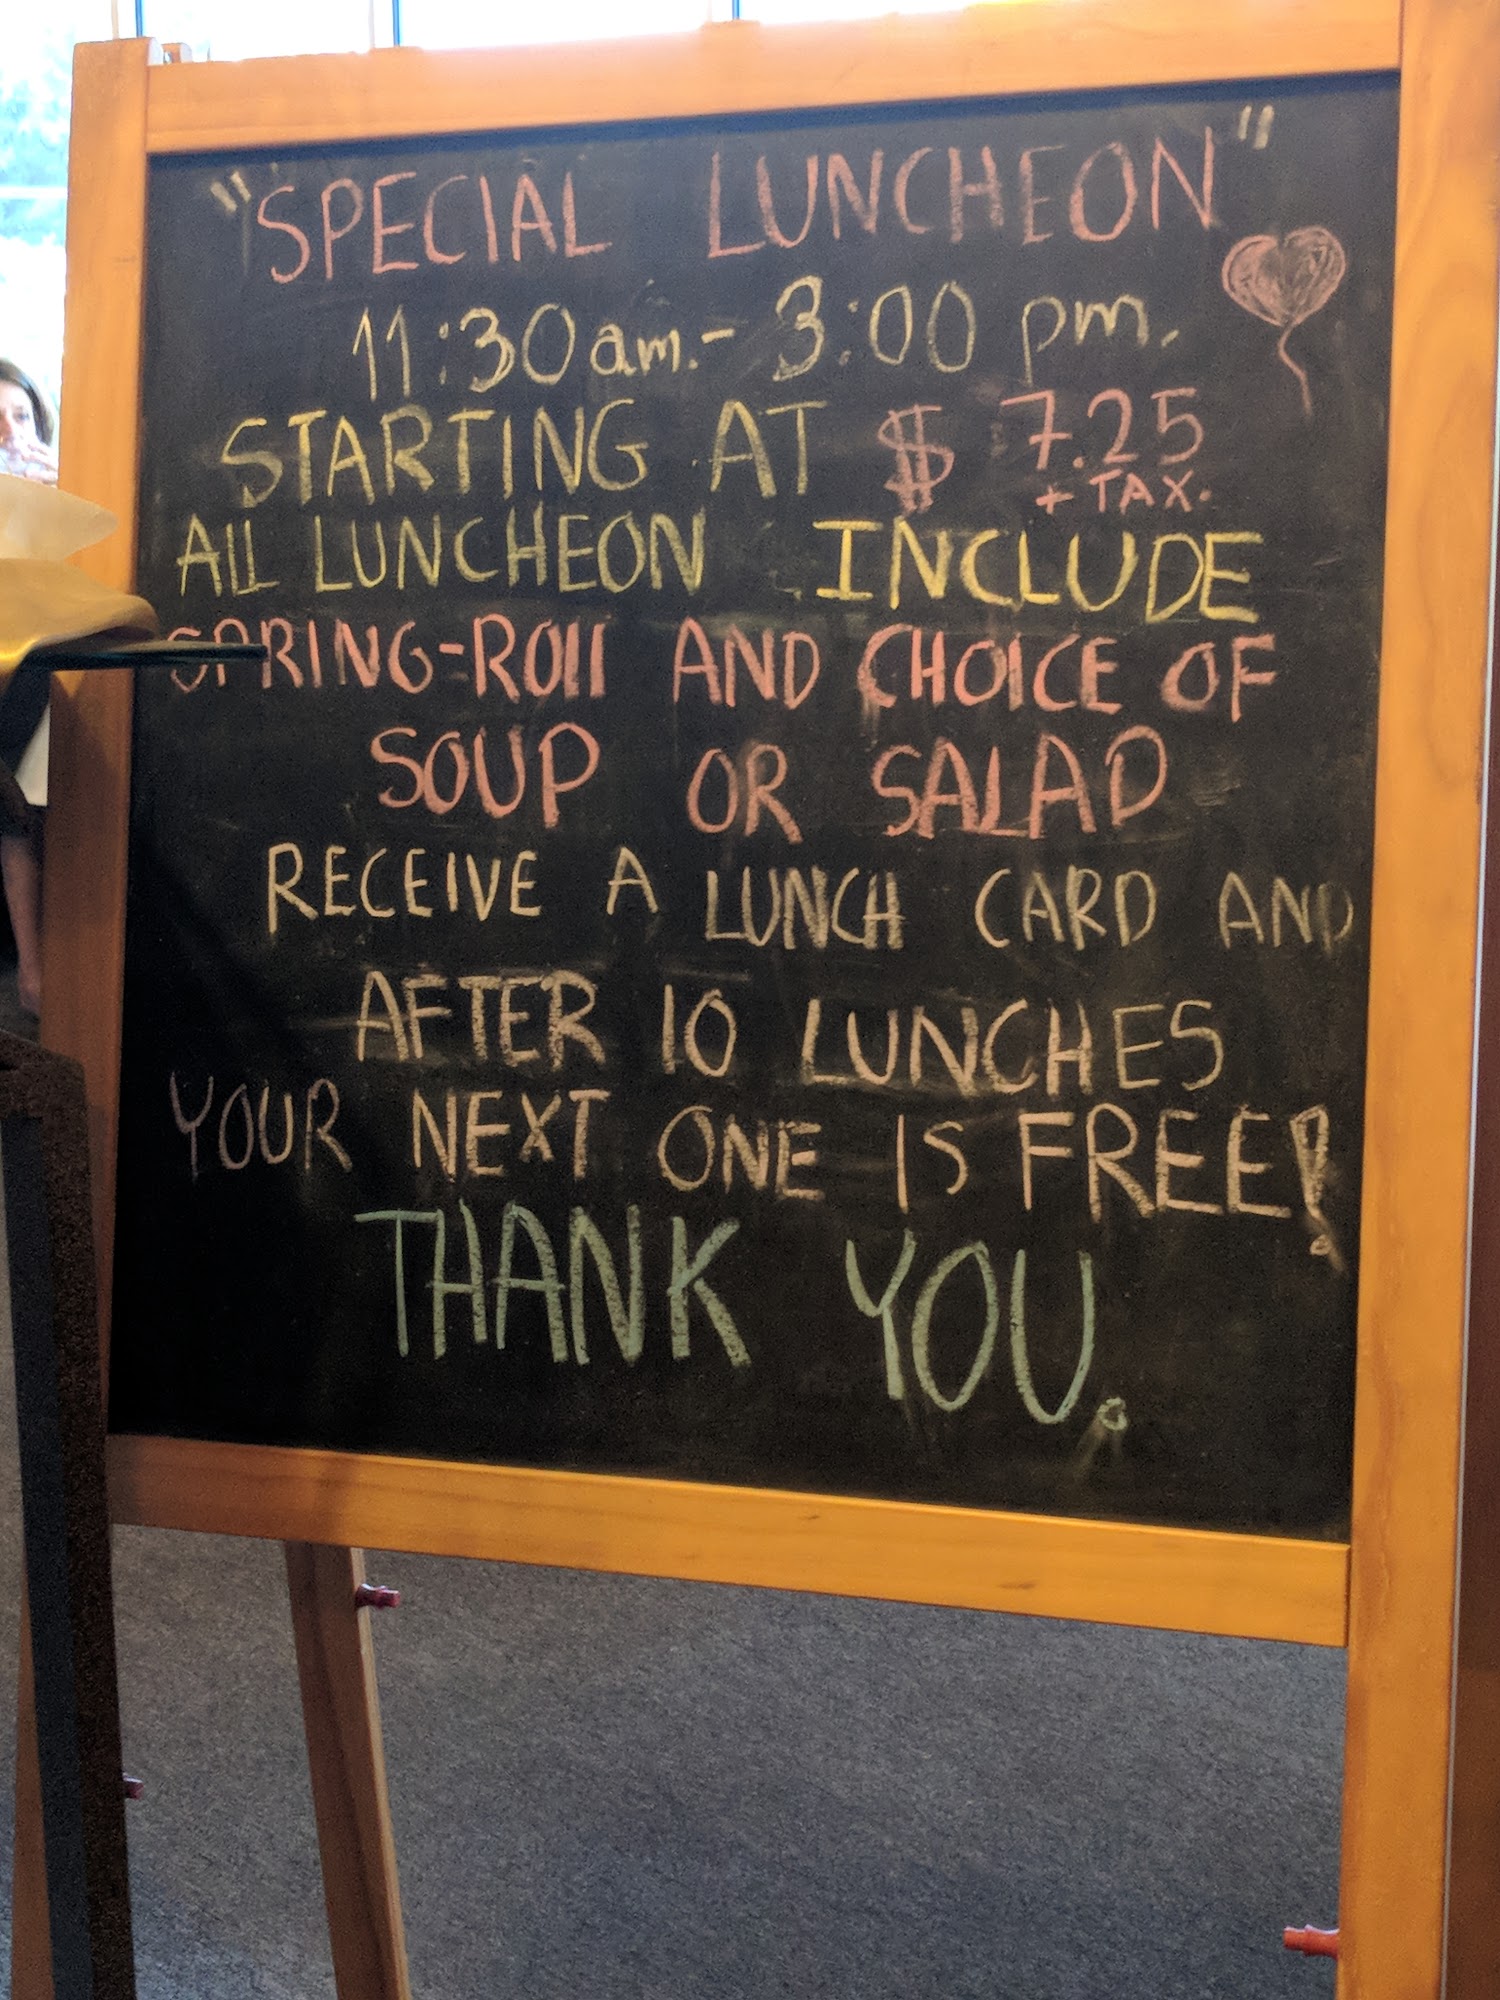 "SPECIAL LUNCHEON"
11:30am.- 3:00 pm.
STARTING AT $ 7.25
+ TAX.
ALL LUNCHEON INCLUDE
SPRING-ROLL AND CHOICE OF
SOUP OR SALAD
RECEIVE A LUNCH CARD AND
AFTER 10 LUNCHES
YOUR NEXT ONE IS FREE!
THANK YOU.